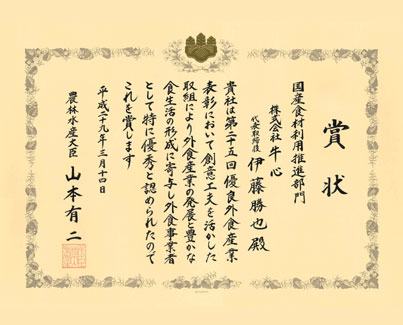 賞状
国産食材利用推進部門
株式会社 牛心
代表取締役 伊藤勝也殿
貴社は第二十五回優良外食産業
表彰において創意工夫を活かした
取組により外食産業の発展と豊かな
食生活の形成に寄与し外食事業者
として特に優秀と認められたので
これを賞します
平成二十九年三月十四日
農林水産大臣 山本有二